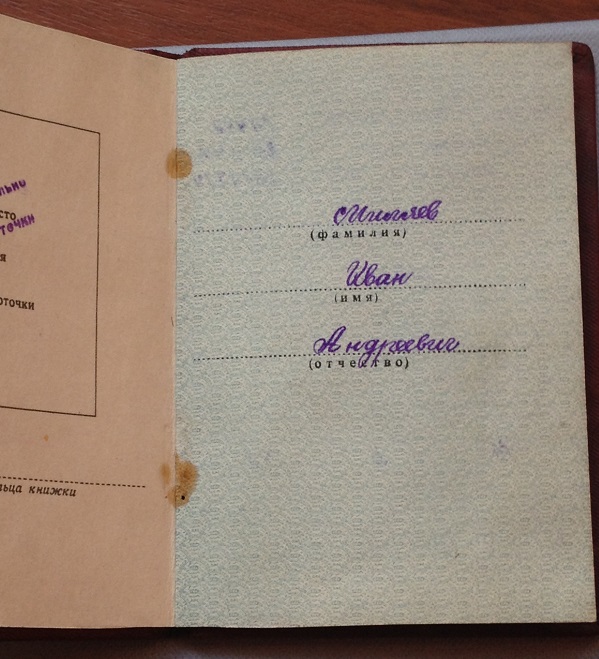 льно
сто
точки
я
оточки
льца книжки
(фамилия)
Иван
(имя)
Андреевич
(отчество)